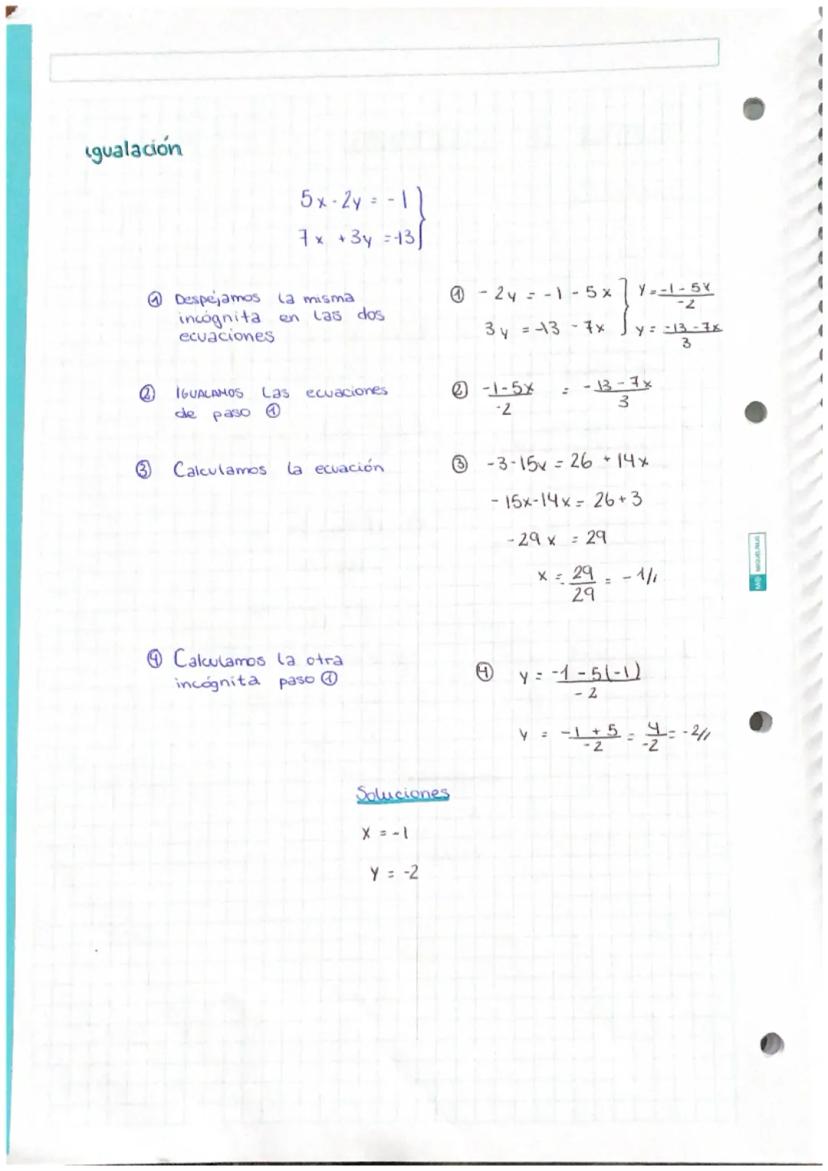 igualación
5x - 2y = -1
7x + 3y = -13
① Despejamos la misma
incógnita en las dos
ecuaciones
① - 2y = -1 - 5x } y = -1-5x / -2
3y = -13 - 7x } y = -13-7x / 3
② IGUALAMOS Las ecuaciones
de paso ①
② -1-5x / -2 = -13-7x / 3
③ Calculamos la ecuación
③ -3-15x = 26 + 14x
- 15x-14x = 26+3
-29x = 29
x = - 29 / 29 = -1//
④ Calculamos la otra
incógnita paso ①
④ y = -1 - 5(-1) / -2
y = -1 + 5 / -2 = 4 / -2 = -2//
Soluciones
x = -1
y = -2
MIQUELRIUS